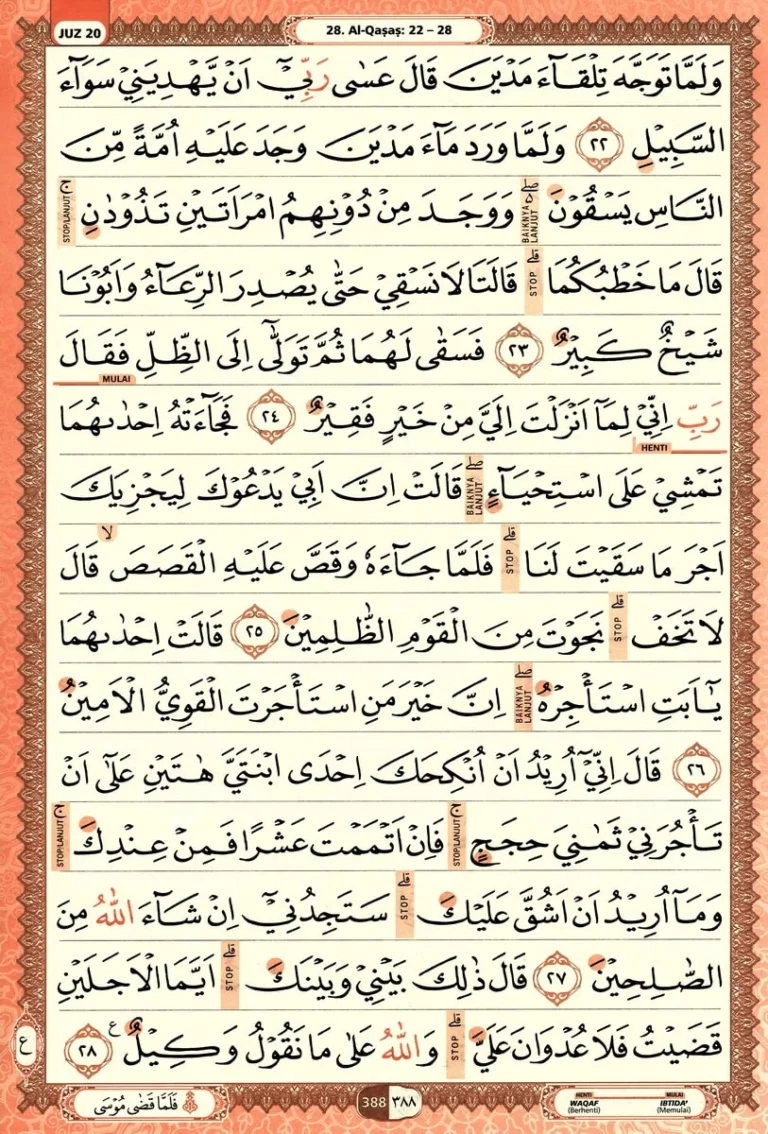 JUZ 20
28. Al-Qaṣaṣ: 22 – 28
وَلَمَّا تَوَجَّهَ تِلْقَاۤءَ مَدْيَنَ قَالَ عَسٰى رَبِّيْٓ اَنْ يَّهْدِيَنِيْ سَوَاۤءَ
السَّبِيْلِ ٢٢ وَلَمَّا وَرَدَ مَاۤءَ مَدْيَنَ وَجَدَ عَلَيْهِ اُمَّةً مِّنَ
النَّاسِ يَسْقُوْنَ ۖ BAIKNYA LANJUT وَوَجَدَ مِنْ دُوْنِهِمُ امْرَاَتَيْنِ تَذُوْدٰنِ ۚ STOP/LANJUT
قَالَ مَا خَطْبُكُمَا ۗ STOP قَالَتَا لَا نَسْقِيْ حَتّٰى يُصْدِرَ الرِّعَاۤءُ وَاَبُوْنَا
شَيْخٌ كَبِيْرٌ ٢٣ فَسَقٰى لَهُمَا ثُمَّ تَوَلّٰىٓ اِلَى الظِّلِّ فَقَالَ
MULAI
رَبِّ اِنِّيْ لِمَآ اَنْزَلْتَ اِلَيَّ مِنْ خَيْرٍ فَقِيْرٌ ٢٤ فَجَاۤءَتْهُ اِحْدٰىهُمَا
HENTI
تَمْشِيْ عَلَى اسْتِحْيَاۤءٍ ۖ BAIKNYA LANJUT قَالَتْ اِنَّ اَبِيْ يَدْعُوْكَ لِيَجْزِيَكَ
اَجْرَ مَا سَقَيْتَ لَنَا ۗ STOP فَلَمَّا جَاۤءَهٗ وَقَصَّ عَلَيْهِ الْقَصَصَ ۙ قَالَ
لَا تَخَفْ ۗ STOP نَجَوْتَ مِنَ الْقَوْمِ الظّٰلِمِيْنَ ٢٥ قَالَتْ اِحْدٰىهُمَا
يٰٓاَبَتِ اسْتَأْجِرْهُ ۖ BAIKNYA LANJUT اِنَّ خَيْرَ مَنِ اسْتَأْجَرْتَ الْقَوِيُّ الْاَمِيْنُ
٢٦ قَالَ اِنِّيْٓ اُرِيْدُ اَنْ اُنْكِحَكَ اِحْدَى ابْنَتَيَّ هٰتَيْنِ عَلٰٓى اَنْ
تَأْجُرَنِيْ ثَمٰنِيَ حِجَجٍ ۚ STOP/LANJUT فَاِنْ اَتْمَمْتَ عَشْرًا فَمِنْ عِنْدِكَ ۚ STOP/LANJUT
وَمَآ اُرِيْدُ اَنْ اَشُقَّ عَلَيْكَ ۗ STOP سَتَجِدُنِيْٓ اِنْ شَاۤءَ اللّٰهُ مِنَ
الصّٰلِحِيْنَ ٢٧ قَالَ ذٰلِكَ بَيْنِيْ وَبَيْنَكَ ۗ STOP اَيَّمَا الْاَجَلَيْنِ
قَضَيْتُ فَلَا عُدْوَانَ عَلَيَّ ۗ STOP وَاللّٰهُ عَلٰى مَا نَقُوْلُ وَكِيْلٌ ࣖ ٢٨
ع
فَلَمَّا قَضٰى مُوْسَى
388 ٣٨٨
HENTI WAQAF (Berhenti)
MULAI IBTIDA' (Memulai)